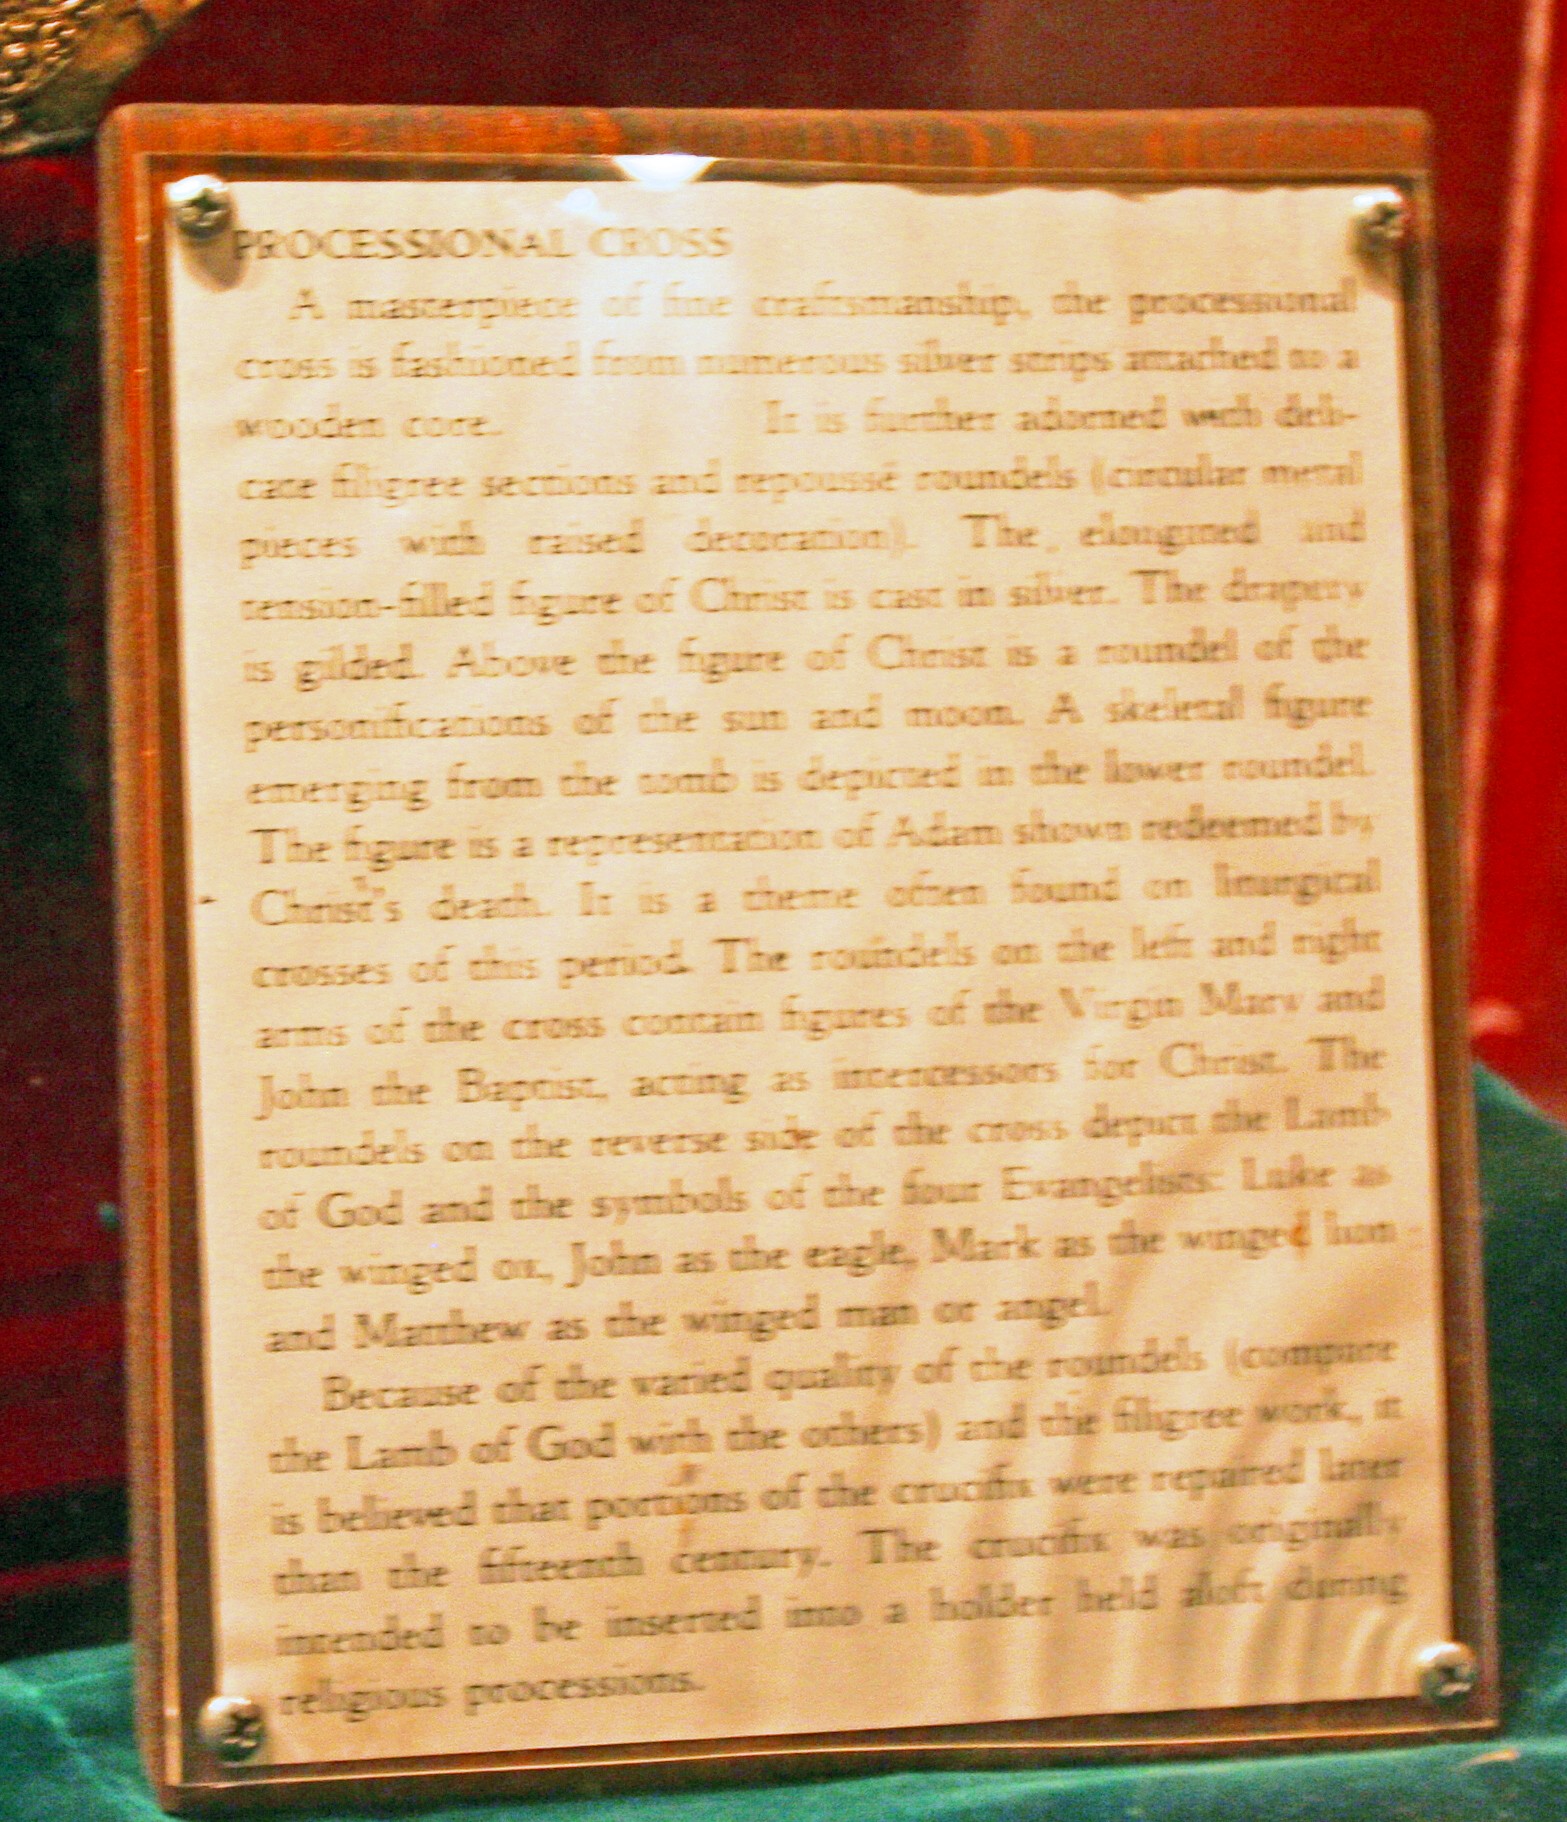 PROCESSIONAL CROSS
A masterpiece of fine craftsmanship, the processional
cross is fashioned from numerous silver strips attached to a
wooden core. It is further adorned with deli-
cate filigree sections and repoussé roundels (circular metal
pieces with raised decoration). The elongated and
tension-filled figure of Christ is cast in silver. The drapery
is gilded. Above the figure of Christ is a roundel of the
personifications of the sun and moon. A skeletal figure
emerging from the tomb is depicted in the lower roundel.
The figure is a representation of Adam shown redeemed by
Christ's death. It is a theme often found on liturgical
crosses of this period. The roundels on the left and right
arms of the cross contain figures of the Virgin Mary and
John the Baptist, acting as intercessors for Christ. The
roundels on the reverse side of the cross depict the Lamb
of God and the symbols of the four Evangelists: Luke as
the winged ox, John as the eagle, Mark as the winged lion
and Matthew as the winged man or angel.
Because of the varied quality of the roundels (compare
the Lamb of God with the others) and the filigree work, it
is believed that portions of the crucifix were repaired later
than the fifteenth century. The crucifix was originally
intended to be inserted into a holder held aloft during
religious processions.